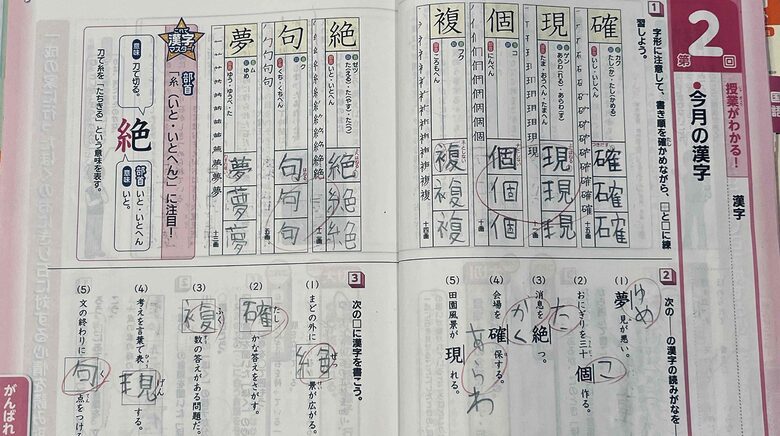 第2回
授業がわかる!
今月の漢字
漢字
1 字形に注意して、書き順を確かめながら、□と□に練習しよう。
確 カク たしか・たしかめる いし・いしへん 十五画
確確確
現 ゲン あらわれる・あらわす たま・おうへん・たまへん 十一画
現現現
個 コ にんべん 十画
個個個
複 フク ころもへん 十四画
複複複
絶 ゼツ たえる・たやす・たつ いと・いとへん 十二画
絶絶絶
句 ク くち・くちへん 五画
句句句
夢 ム ゆめ ゆう・ゆうべ・た 十三画
夢夢夢
漢字マスター
部首「糸(いと・いとへん)」に注目!
意味 刀で切る。
絶
部首 いと・いとへん
意味 いと。
刀で糸を「たちきる」という意味を表す。
2 次の――の漢字の読みがなを
(1) 夢見が悪い。 ゆめ
(2) おにぎりを三十個作る。 こ
(3) 消息を絶つ。 た
(4) 会場を確保する。 かく
(5) 田園風景が現れる。 あらわ
3 次の□に漢字を書こう。
(1) まどの外に絶景が広がる。 ぜっ
(2) 確かな答えをさがす。 たし
(3) 複数の答えがある問題だ。 ふく
(4) 考えを言葉で表現する。 げん
(5) 文の終わりに句点をつける く
がんばれ